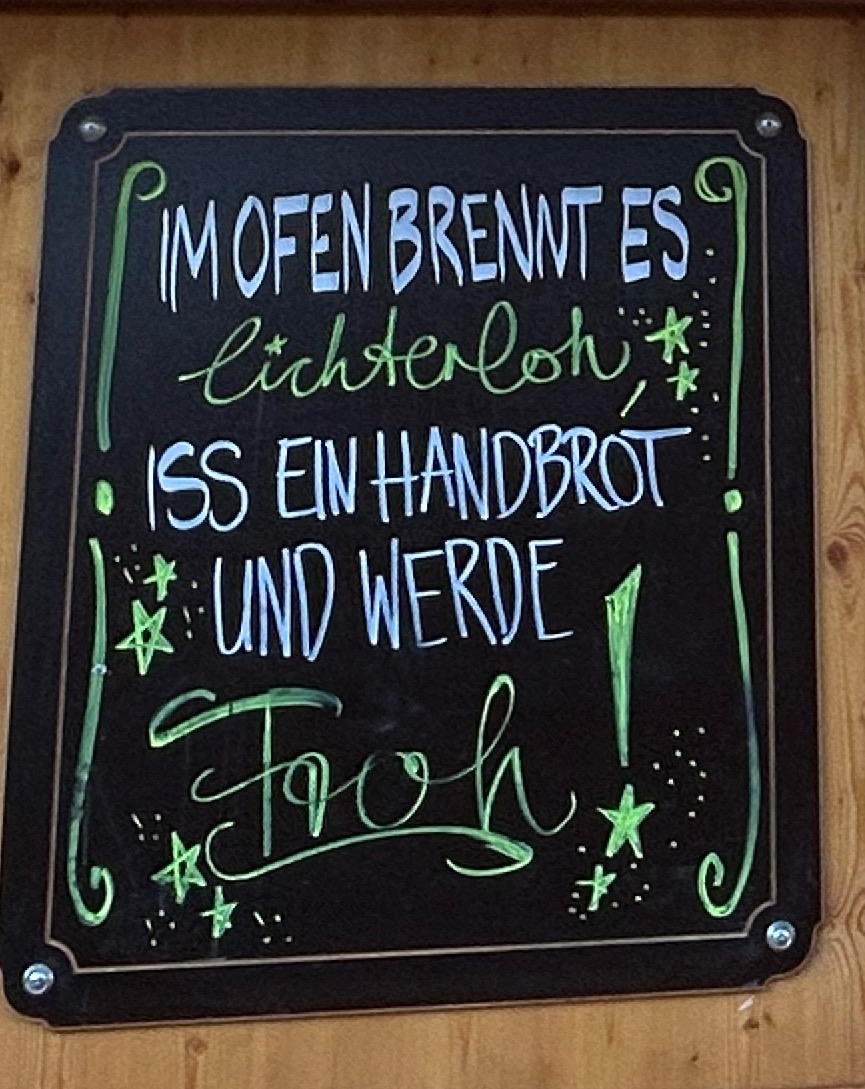 IM OFEN BRENNT ES
lichterloh,
ISS EIN HANDBROT
UND WERDE
Froh!